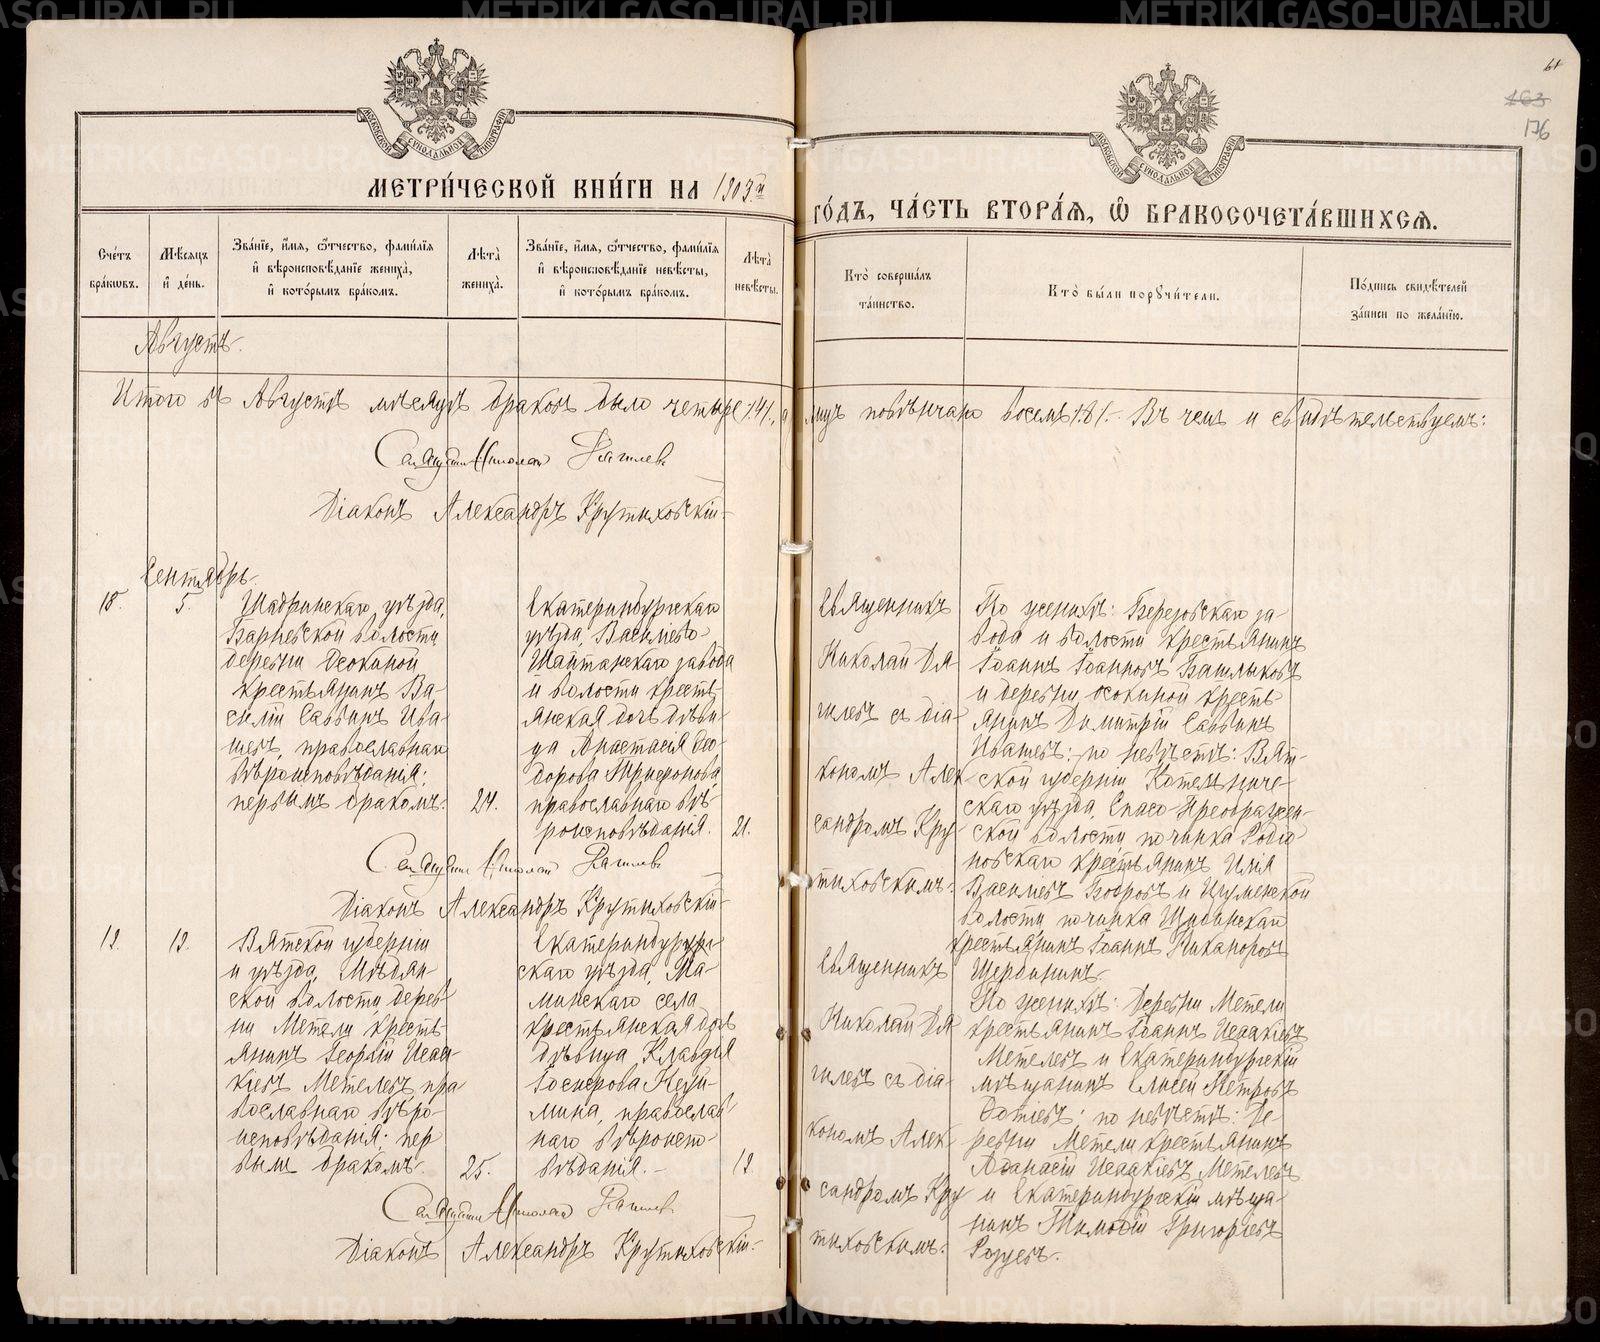 МЕТРИ́ЧЕСКОЙ КНИ́ГИ НА 1903й
ГО́ДЪ, ЧА́СТЬ ВТОРА́Я, Ѽ БРАКОСОЧЕТА́ВШИХСЯ.
МОСКОВСКОЙ СѴНОДАЛЬНОЙ ТИПОГРАФІИ
МОСКОВСКОЙ СѴНОДАЛЬНОЙ ТИПОГРАФІИ
61
163
176
Сче́тъ бра́кѡвъ.
Мѣ́сяцъ и҆ де́нь.
Зва́нїе, и҆́мя, ѻ҆́тчество, фами́лїя
и҆ вѣроисповѣ́данїе жениха̀,
и҆ кото́рымъ бра́комъ.
Лѣ́та жениха̀.
Зва́нїе, и҆́мя, ѻ҆́тчество, фами́лїя
и҆ вѣроисповѣ́данїе невѣ́сты,
и҆ кото́рымъ бра́комъ.
Лѣ́та невѣ́сты.
Кто̀ соверша́лъ
та́инство.
Кто̀ бы́ли порꙋчи́тели.
По́дпись свидѣ́телей
за́писи по жела́нїю.
Августъ.
Итого въ Августѣ мѣсяцѣ браков было четыре /4/, а лицъ повѣнчано восемь /8/. — Въ чемъ и свидѣтельствуемъ:
Священникъ Николай Дягилевъ
Діаконъ Александръ Крутиховскій
Сентябрь.
18.
5.
Шадринскаго уѣзда,
Барневской волости,
деревни Осокиной
крестьянинъ Ва-
силій Саввинъ Ива-
шевъ, православнаго
вѣроисповѣданія;
первымъ бракомъ.
24.
Екатеринбургскаго
уѣзда, Васильево-
Шайтанскаго завода
и волости кресть-
янская дочь дѣви-
ца Анастасія Ѳео-
дорова
православнаго вѣ-
роисповѣданія.
21.
Священникъ
Николай Дя-
гилевъ съ діа-
кономъ Алек-
сандромъ Кру-
тиховскимъ.
По женихѣ: Березовскаго за-
вода и волости крестьянинъ
Іоаннъ Іоанновъ Башлыковъ
и деревни Осокиной кресть-
янинъ Димитрій Саввинъ
Ивашевъ; по невѣстѣ: Вят-
ской губерніи Котельниче-
скаго уѣзда, Спасо-Преображен-
ской волости, починка Родіо-
новскаго крестьянинъ Илія
Васильевъ Бобровъ и
волости починка
крестьянинъ Іоаннъ Никаноровъ
Щербининъ.
Священникъ Николай Дягилевъ
Діаконъ Александръ Крутиховскій
19.
19.
Вятской губерніи
и уѣзда, Мѣдян-
ской волости, дерев-
ни Метели кресть-
янинъ Георгій Исаа-
кіевъ Метелевъ, пра-
вославнаго вѣро-
исповѣданія; пер-
вымъ бракомъ.
25.
Екатеринбургскаго
скаго уѣзда, Ма-
минскаго села
крестьянская дочь
дѣвица Клавдія
православ-
наго вѣроиспо-
вѣданія. —
19.
Священникъ
Николай Дя-
гилевъ съ діа-
кономъ Алек-
сандромъ Кру-
тиховскимъ.
По женихѣ: Деревни Метели
крестьянинъ Іоаннъ Исаакіевъ
Метелевъ и Екатеринбургскій
мѣщанинъ Елисей Петровъ
Фотіевъ; по невѣстѣ: Де-
ревни Метели крестьянинъ
Аѳанасій Исаакіевъ Метелевъ
и Екатеринбургскій мѣща-
нинъ Тимоѳей Григорьевъ
Священникъ Николай Дягилевъ
Діаконъ Александръ Крутиховскій.
METRIKI.GASO-URAL.RU